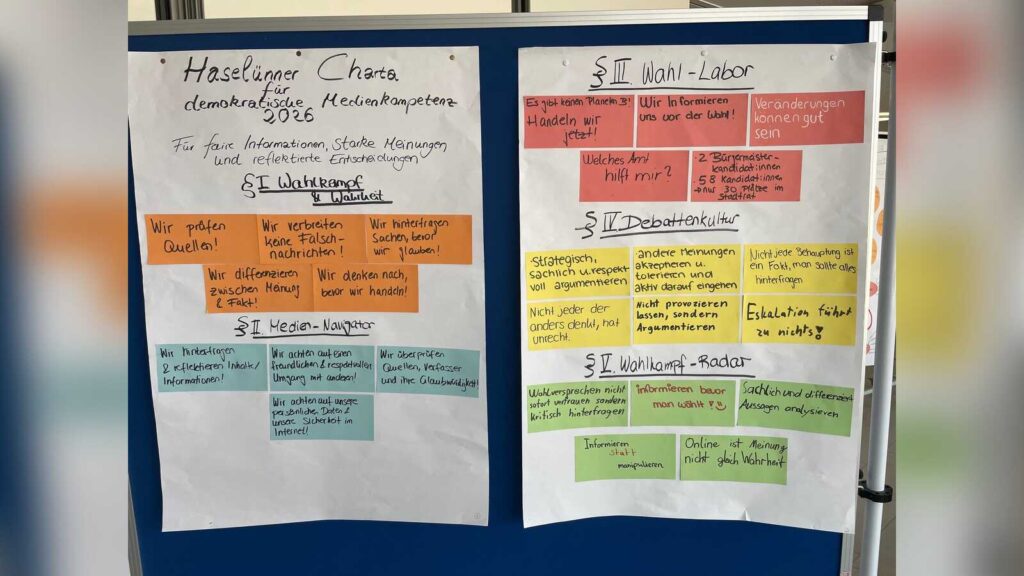 Haselünner Charta
für
demokratische Medienkompetenz
2026
Für faire Informationen, Starke Meinungen
und reflektierte Entscheidungen
§ I Wahlkampf
& Wahrheit
Wir prüfen
Quellen!
Wir verbreiten
keine Falsch-
nachrichten!
Wir hinterfragen
Sachen, bevor
wir glauben!
Wir differenzieren
zwischen Meinung
& Fakt!
Wir denken nach,
bevor wir handeln!
§ II. Medien-Navigator
Wir hinterfragen
& reflektieren Inhalte/
Informationen!
Wir achten auf einen
freundlichen & respektvollen
Umgang mit anderen!
Wir überprüfen
Quellen, Verfasser
und ihre Glaubwürdigkeit!
Wir achten auf unsere
persönlichen Daten &
unsere Sicherheit im
Internet!
§ III. Wahl-Labor
Es gibt keinen Planeten B!
Handeln wir
jetzt!
Wir Informieren
uns vor der Wahl!
Veränderungen
können gut
sein
Welches Amt
hilft mir?
- 2 Bürgermeister-
kandidat:innen
58 Kandidat:innen
→ nur 30 Plätze im
Stadtrat
§ IV. Debattenkultur
Strategisch,
sachlich u. respekt
voll argumentieren
andere Meinungen
akzeptieren u.
tolerieren und
aktiv darauf eingehen
Nicht jede Behauptung ist
ein Fakt, man sollte alles
hinterfragen
Nicht jeder der
anders denkt, hat
unrecht.
Nicht provozieren
lassen, sondern
Argumentieren
Eskalation führt
zu nichts!
§ V. Wahlkampf-Radar
Wahlversprechen nicht
sofort vertrauen sondern
kritisch hinterfragen
informieren bevor
man wählt!
Sachlich und differenziert
Aussagen analysieren
Informieren
statt
manipulieren
Online ist Meinung
nicht gleich Wahrheit